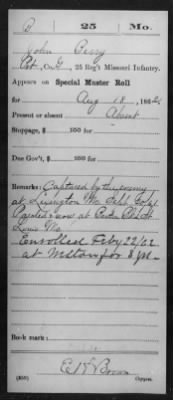 B 25 Mo.
John Berry
Pvt, Co. G, 25 Reg't Missouri Infantry.
Appears on Special Muster Roll
for Aug 18, 1862.
Present or absent Absent
Stoppage, $ 100 for
Due Gov't, $ 100 for
Remarks: Captured by the enemy
at Lexington Mo Sept 20/61
Paroled & now at Benton Bks St
Louis Mo
Enrolled Feby 22/62
at Milton for 3 yrs.
Book mark:
(858) Copyist.